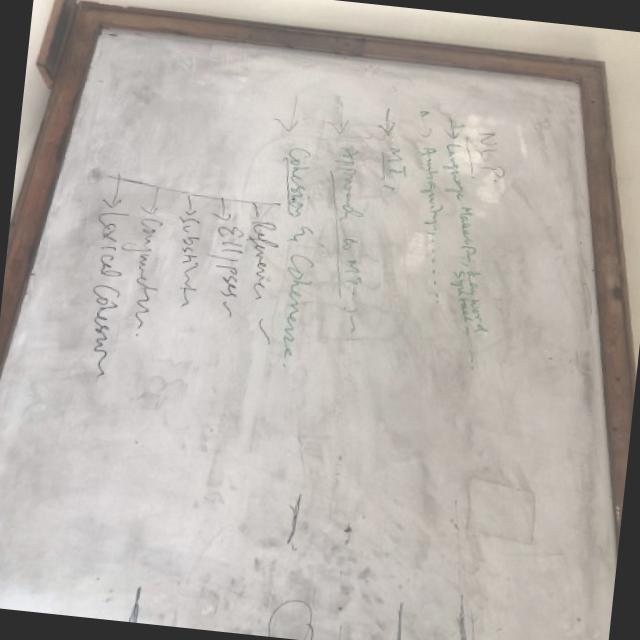 NLP
→ Language Meaning
→ Ambiguity ......
→ MT
→ Approach to MT
→ Cohesion & Coherence
→ Reference
→ Ellipses
→ Substitution
→ Conjunction
→ Lexical Cohesion